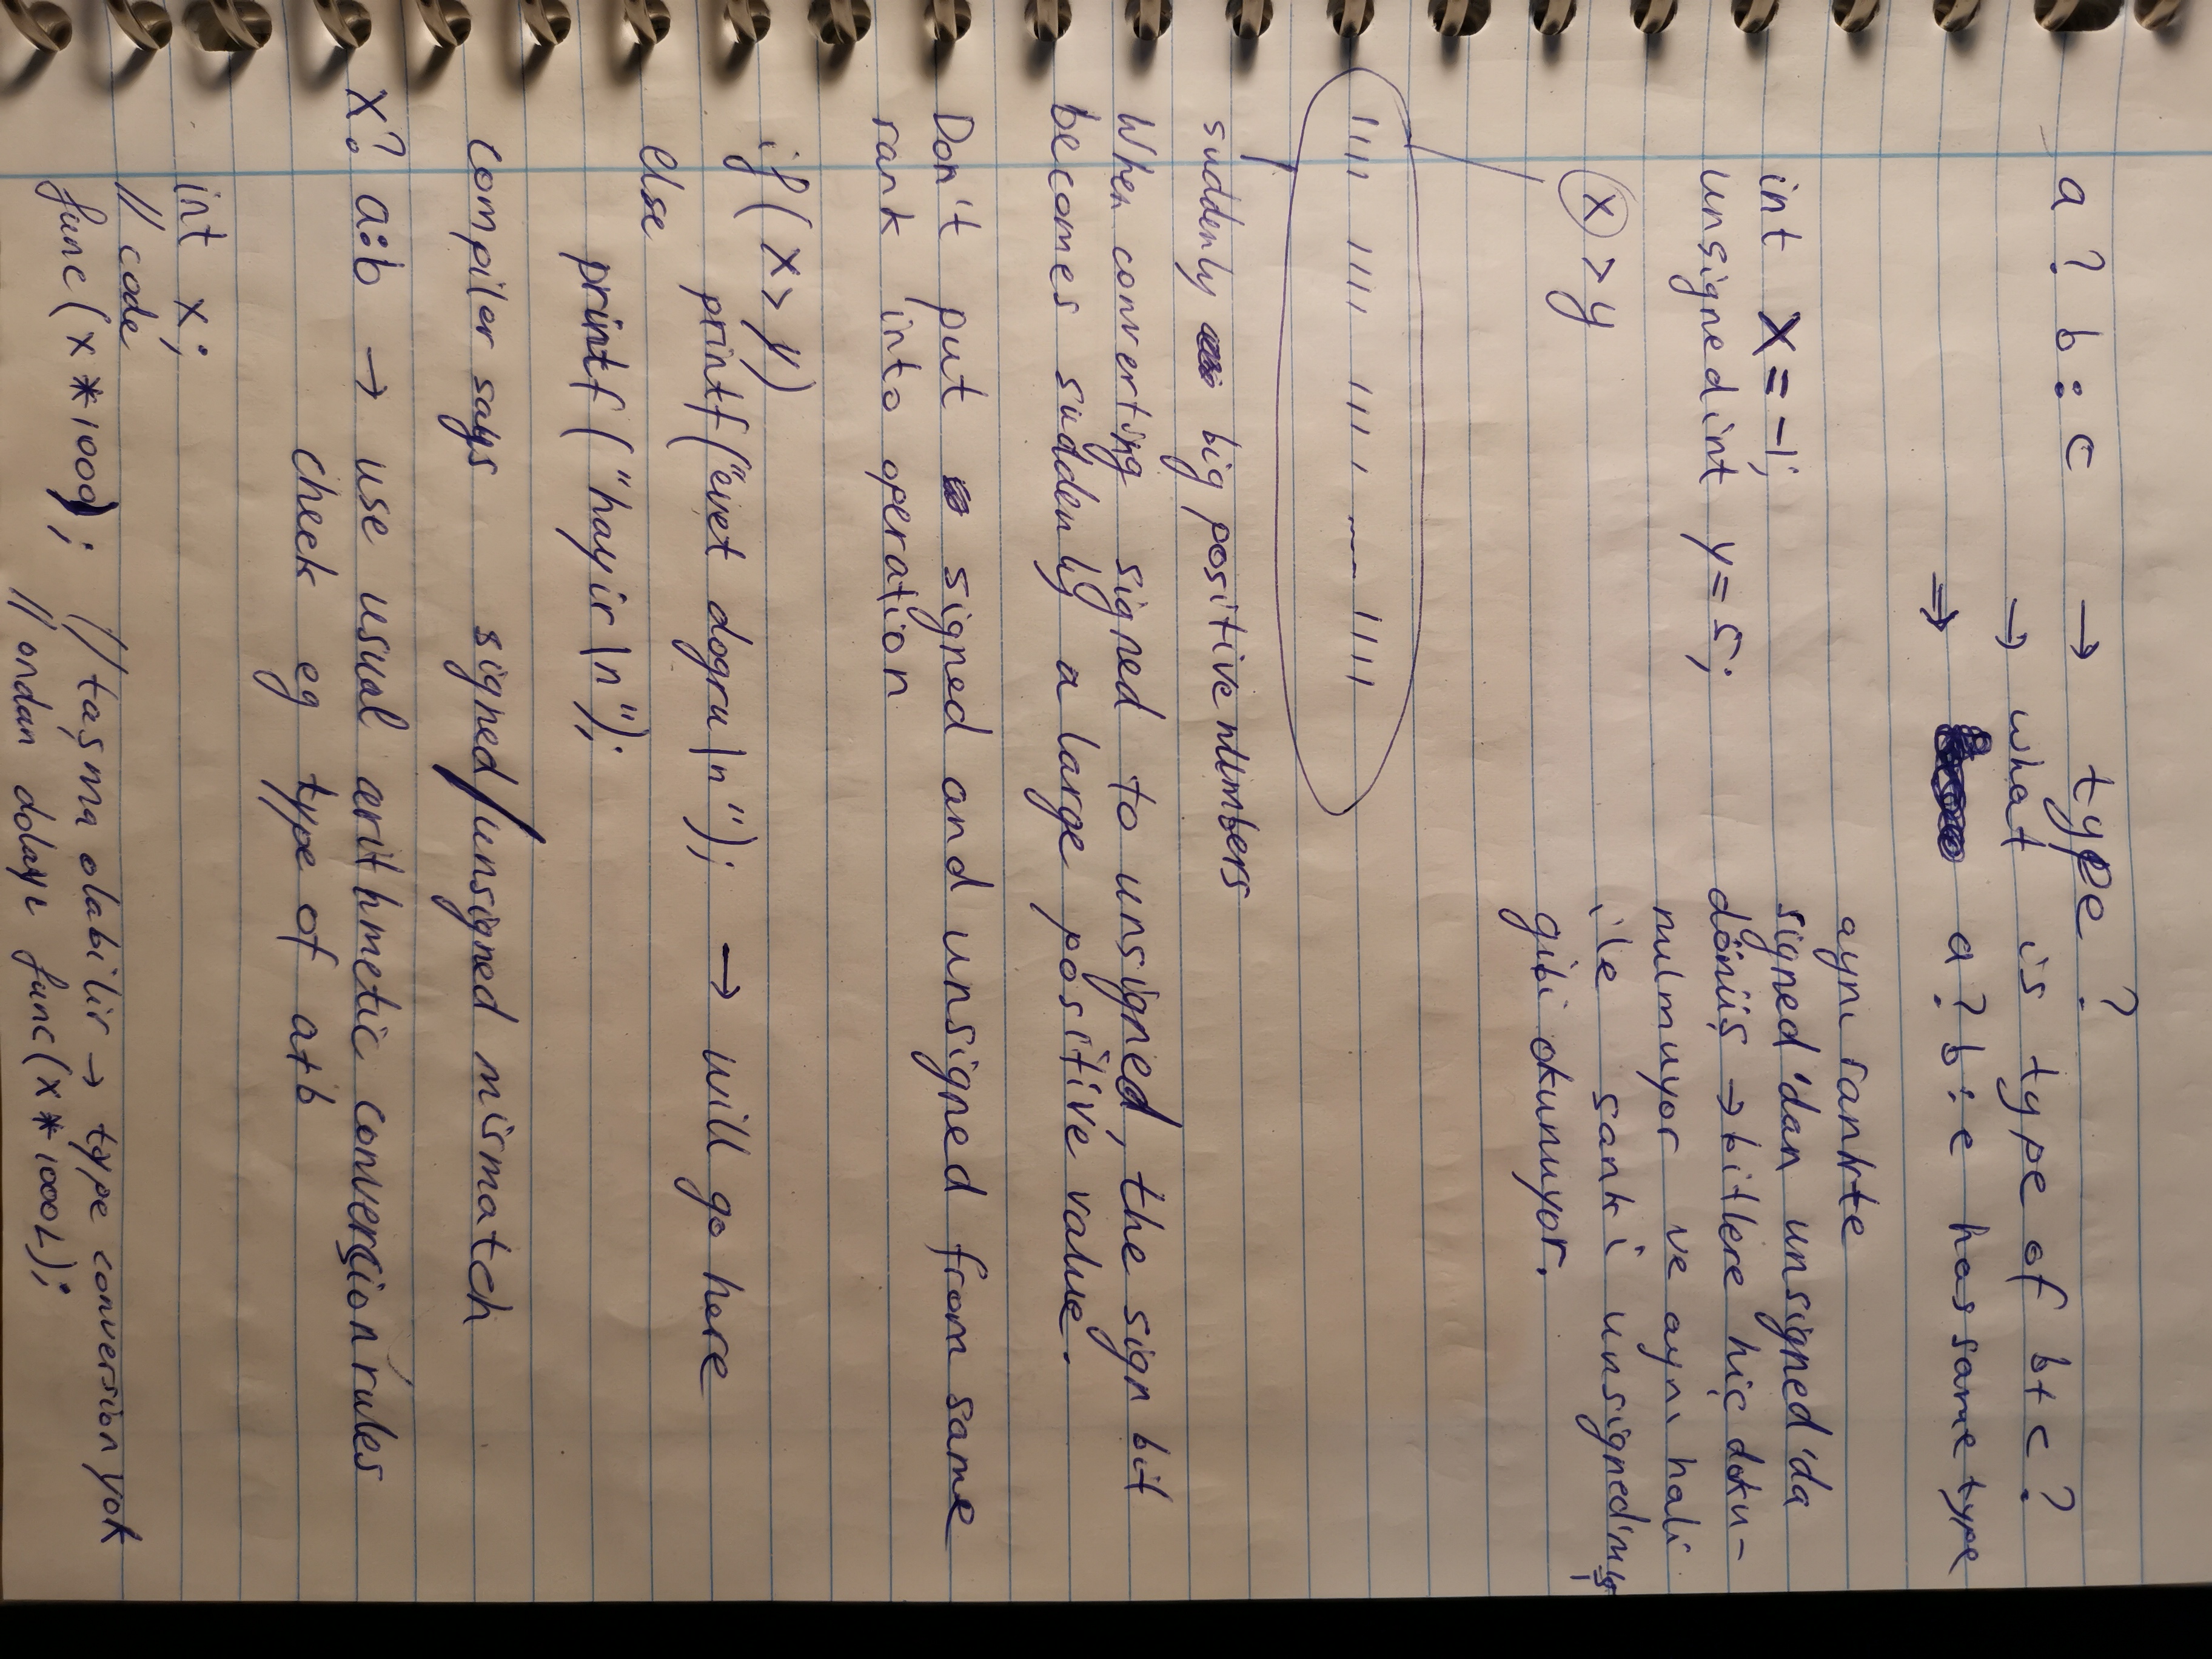 a ? b : c → type ?
→ what is type of b+c ?
⇒ a ? b : c has same type
aynı rankte
signed'dan unsigned'da
dönüş → bitlere hiç doku-
nulmuyor ve aynı hali
ile sanki unsigned'mış
gibi okunuyor.
int x = -1;
unsigned int y = 5;
x > y
1111 1111 1111 ---- 1111
suddenly big positive numbers
When converting signed to unsigned, the sign bit
becomes suddenly a large positive value.
Don't put signed and unsigned from same
rank into operation
if ( x > y )
printf("evet dogru\n"); → will go here
else
printf ("hayir\n");
compiler says signed/unsigned mismatch
x? a:b → use usual arithmetic conversion rules
check eg type of a+b
int x;
// code
func(x * 1000); // taşma olabilir → type conversion yok
// ondan dolayı func(x * 1000L);